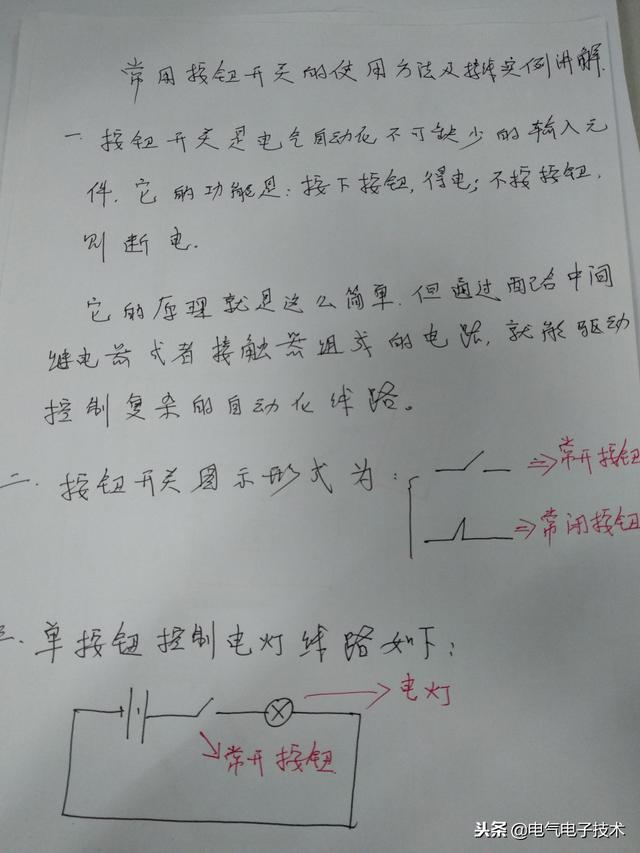 常用按钮开关的使用方法及接线实例讲解.
一 按钮开关是电气自动化不可缺少的输入元
件.它的功能是:按下按钮,得电;不按按钮,
则断电.
它的原理就是这么简单.但通过配合中间
继电器或者接触器组成的电路,就能驱动
控制复杂的自动化线路。
二.按钮开关图示形式为:
⇒常开按钮
⇒常闭按钮
三.单按钮控制电灯线路如下:
电灯
常开按钮
头条 @电气电子技术